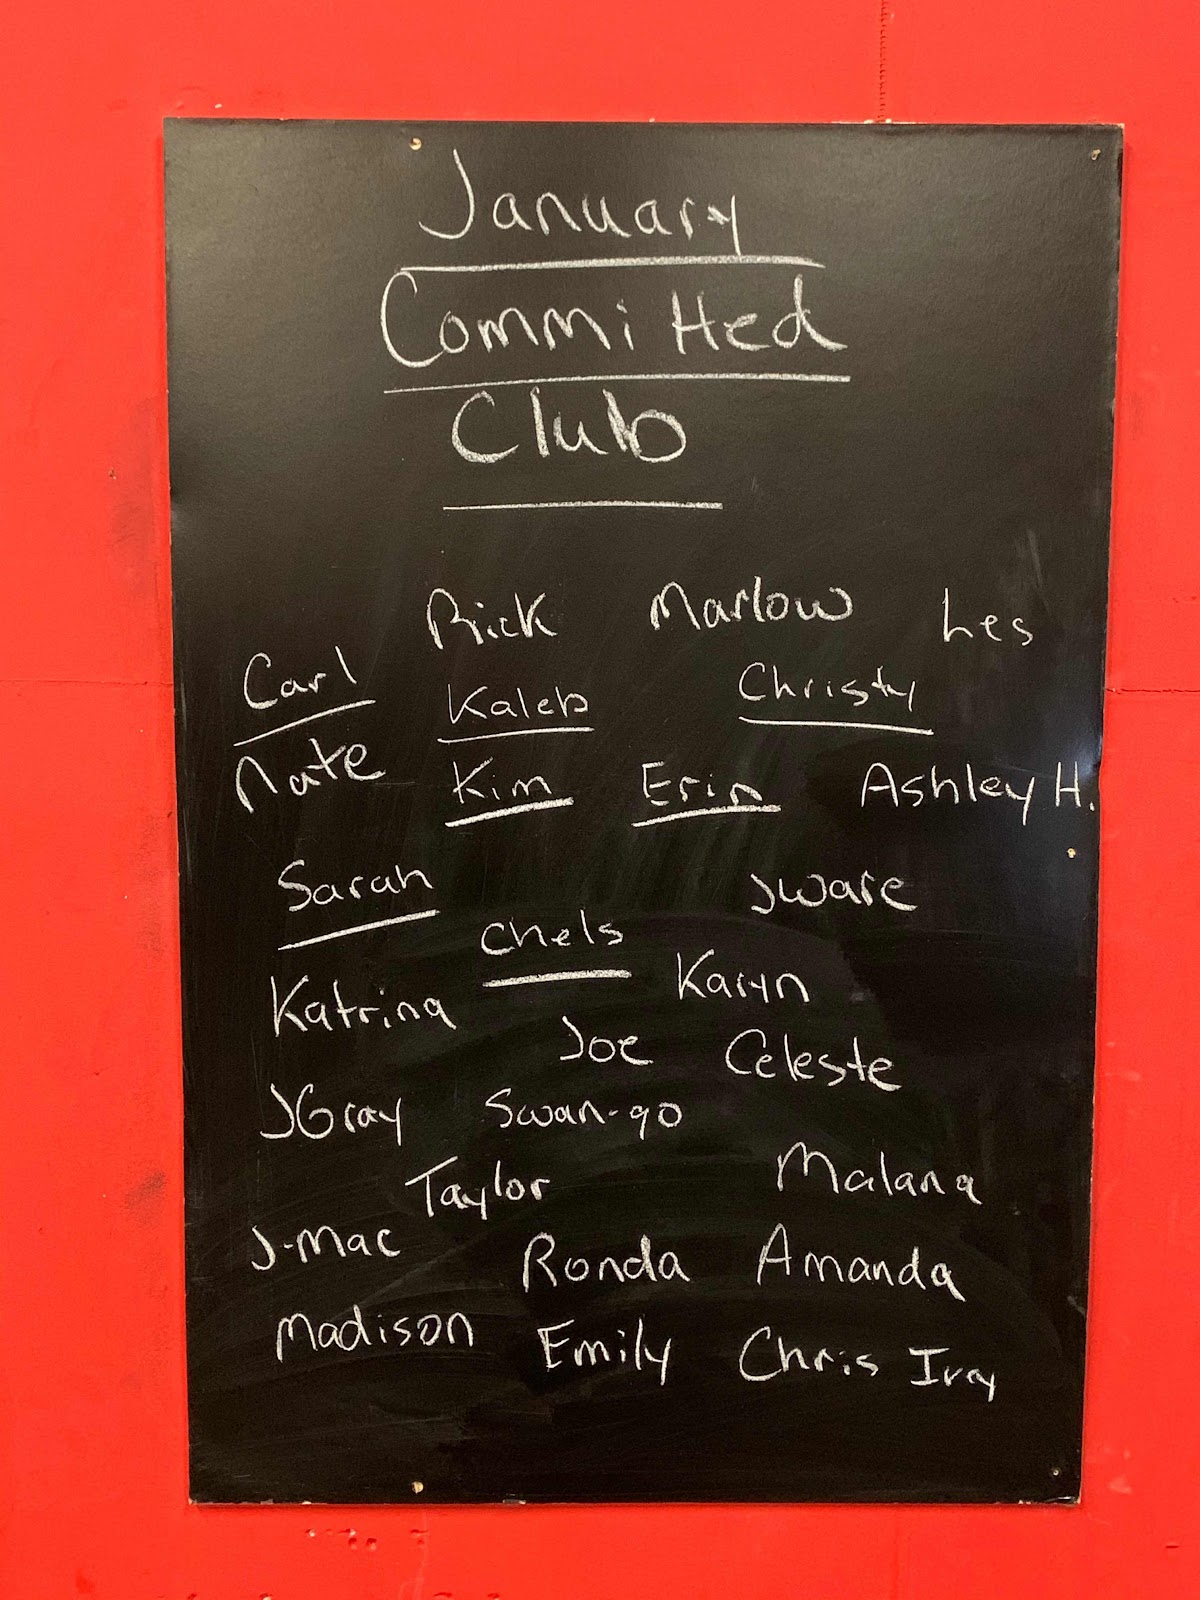 January
Committed
Club
Rick Marlow Les
Carl Kaleb Christy
Nate Kim Erin Ashley H.
Sarah Jware
Chels
Katrina Karyn
Joe Celeste
JGray Swan-go
Taylor Malana
J-Mac Ronda Amanda
Madison Emily Chris Ivey